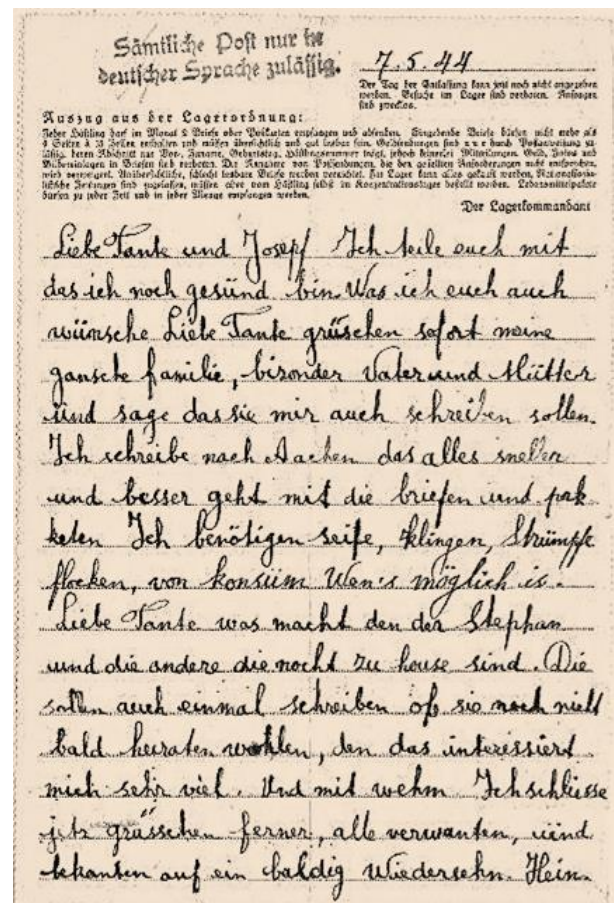 Sämtliche Post nur in
deutscher Sprache zulässig.
7.5.44
Der Tag der Entlassung kann jetzt noch nicht angegeben
werden. Besuche im Lager sind verboten. Anfragen
sind zwecklos.
Auszug aus der Lagerordnung:
Jeder Häftling darf im Monat 2 Briefe oder Postkarten empfangen und absenden. Eingehende Briefe dürfen nicht mehr als
4 Seiten à 15 Zeilen enthalten und müssen übersichtlich und gut lesbar sein. Geldsendungen sind nur durch Postanweisung zu-
lässig, deren Abschnitt nur Vor-, Zuname, Geburtstag, Häftlingsnummer trägt, jedoch keinerlei Mitteilungen. Geld, Fotos und
Bildereinlagen in Briefen sind verboten. Die Annahme von Postsendungen, die den gestellten Anforderungen nicht entsprechen,
wird verweigert. Unübersichtliche, schlecht lesbare Briefe werden vernichtet. Im Lager kann alles gekauft werden. Nationalsozia-
listische Zeitungen sind zugelassen, müssen aber vom Häftling selbst im Konzentrationslager bestellt werden. Lebensmittelpakete
dürfen zu jeder Zeit und in jeder Menge empfangen werden.
Der Lagerkommandant
Liebe Tante und Josepf Ich teile euch mit
das ich noch gesünd bin. Was ich euch auch
wünsche Liebe Tante grüschen sofort meine
gansche familie, bizonder Vater und Mütter
ünd sage das sie mir auch schreiben sollen.
Ich schreibe nach Aachen das alles sneller
und besser geht mit die briefen und pak
keten Ich benötigen seife, klingen, Strümpfe
flocken, von konsüm Wen's möglich is.
Liebe Tante was macht den der Stephan
und die andere die nocht zu house sind. Die
sollen auch einmal schreiben of sie noch nicht
bald heiraten wohlen, den das interessiert
mich sehr viel. Und mit wehm Ich schliesse
jetz grüsschen ferner, alle verwanten, ünd
bekanten auf ein baldig Wiedersehn. Hein.